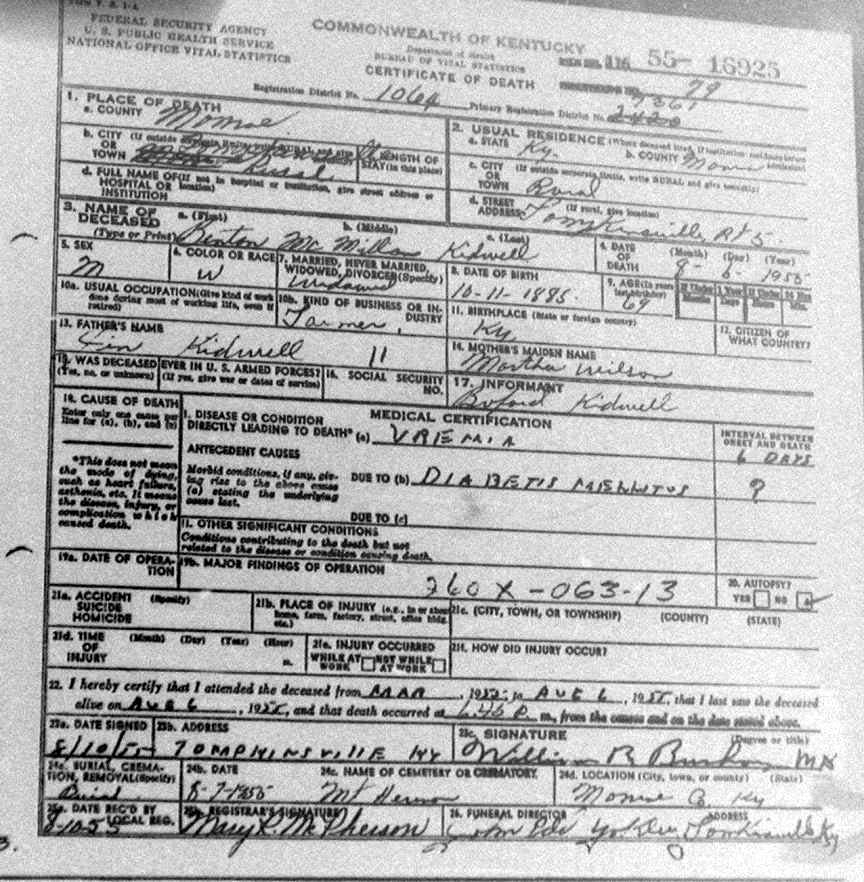 FEDERAL SECURITY AGENCY
U. S. PUBLIC HEALTH SERVICE
NATIONAL OFFICE VITAL STATISTICS
COMMONWEALTH OF KENTUCKY
Department of Health
BUREAU OF VITAL STATISTICS
CERTIFICATE OF DEATH
116 55- 16925
79
Registration District No. 1064 Primary Registration District No. 2420
7361
1. PLACE OF DEATH
a. COUNTY Monroe
b. CITY (If outside RURAL and give
OR
TOWN Rural
LENGTH OF
STAY (in this place)
d. FULL NAME OF (If not in hospital or institution, give street address or
HOSPITAL OR location)
INSTITUTION
2. USUAL RESIDENCE (Where deceased lived. If institution: residence before
a. STATE Ky. b. COUNTY Monroe admission)
c. CITY (If outside corporate limits, write RURAL and give township)
OR
TOWN Rural
d. STREET (If rural, give location)
ADDRESS Tompkinsville, Rt 5.
3. NAME OF a. (First) b. (Middle) c. (Last)
DECEASED
(Type or Print) Benton McMillan Kidwell
4. DATE (Month) (Day) (Year)
OF
DEATH 8-6-1955
5. SEX
M
6. COLOR OR RACE
W
7. MARRIED, NEVER MARRIED,
WIDOWED, DIVORCED (Specify)
Widowed
8. DATE OF BIRTH
10-11-1885.
9. AGE (In years
last birthday)
69
10a. USUAL OCCUPATION (Give kind of work
done during most of working life, even if
retired)
10b. KIND OF BUSINESS OR IN-
DUSTRY
Farmer,
11. BIRTHPLACE (State or foreign country)
Ky
12. CITIZEN OF
WHAT COUNTRY?
13. FATHER'S NAME
Kidwell 11
14. MOTHER'S MAIDEN NAME
Martha Wilson
15. WAS DECEASED EVER IN U. S. ARMED FORCES?
(Yes, no, or unknown) (If yes, give war or dates of service)
16. SOCIAL SECURITY
NO.
17. INFORMANT
Buford Kidwell
18. CAUSE OF DEATH
Enter only one cause per
line for (a), (b), and (c)
*This does not mean
the mode of dying,
such as heart failure,
asthenia, etc. It means
the disease, injury, or
complication which
caused death.
MEDICAL CERTIFICATION
I. DISEASE OR CONDITION
DIRECTLY LEADING TO DEATH* (a) UREMIA
INTERVAL BETWEEN
ONSET AND DEATH
6 DAYS
ANTECEDENT CAUSES
Morbid conditions, if any, giv-
ing rise to the above cause
(a) stating the underlying
cause last.
DUE TO (b) DIABETIS MELLITUS ?
DUE TO (c)
II. OTHER SIGNIFICANT CONDITIONS
Conditions contributing to the death but not
related to the disease or condition causing death.
19a. DATE OF OPERA-
TION
19b. MAJOR FINDINGS OF OPERATION
260X-063-13
20. AUTOPSY?
YES NO
21a. ACCIDENT (Specify)
SUICIDE
HOMICIDE
21b. PLACE OF INJURY (e.g., in or about
home, farm, factory, street, office bldg.
etc.)
21c. (CITY, TOWN, OR TOWNSHIP) (COUNTY) (STATE)
21d. TIME (Month) (Day) (Year) (Hour)
OF
INJURY m.
21e. INJURY OCCURRED
WHILE AT WORK NOT WHILE AT WORK
21f. HOW DID INJURY OCCUR?
22. I hereby certify that I attended the deceased from MAR, 1955, to AUG 6, 1955, that I last saw the deceased
alive on AUG 6, 1955, and that death occurred at 6:45 P m., from the causes and on the date stated above.
23a. DATE SIGNED
8/10/55
23b. ADDRESS
TOMPKINSVILLE KY
23c. SIGNATURE (Degree or title)
William R Bushong MD
24a. BURIAL, CREMA-
TION, REMOVAL (Specify)
Burial
24b. DATE
8-7-1955
24c. NAME OF CEMETERY OR CREMATORY
Mt Hermon
24d. LOCATION (City, town, or county) (State)
Monroe Co. Ky
25a. DATE REC'D BY
LOCAL REG.
8-10-55
25b. REGISTRAR'S SIGNATURE
Mary P. McPherson
26. FUNERAL DIRECTOR ADDRESS
Tompkinsville Ky